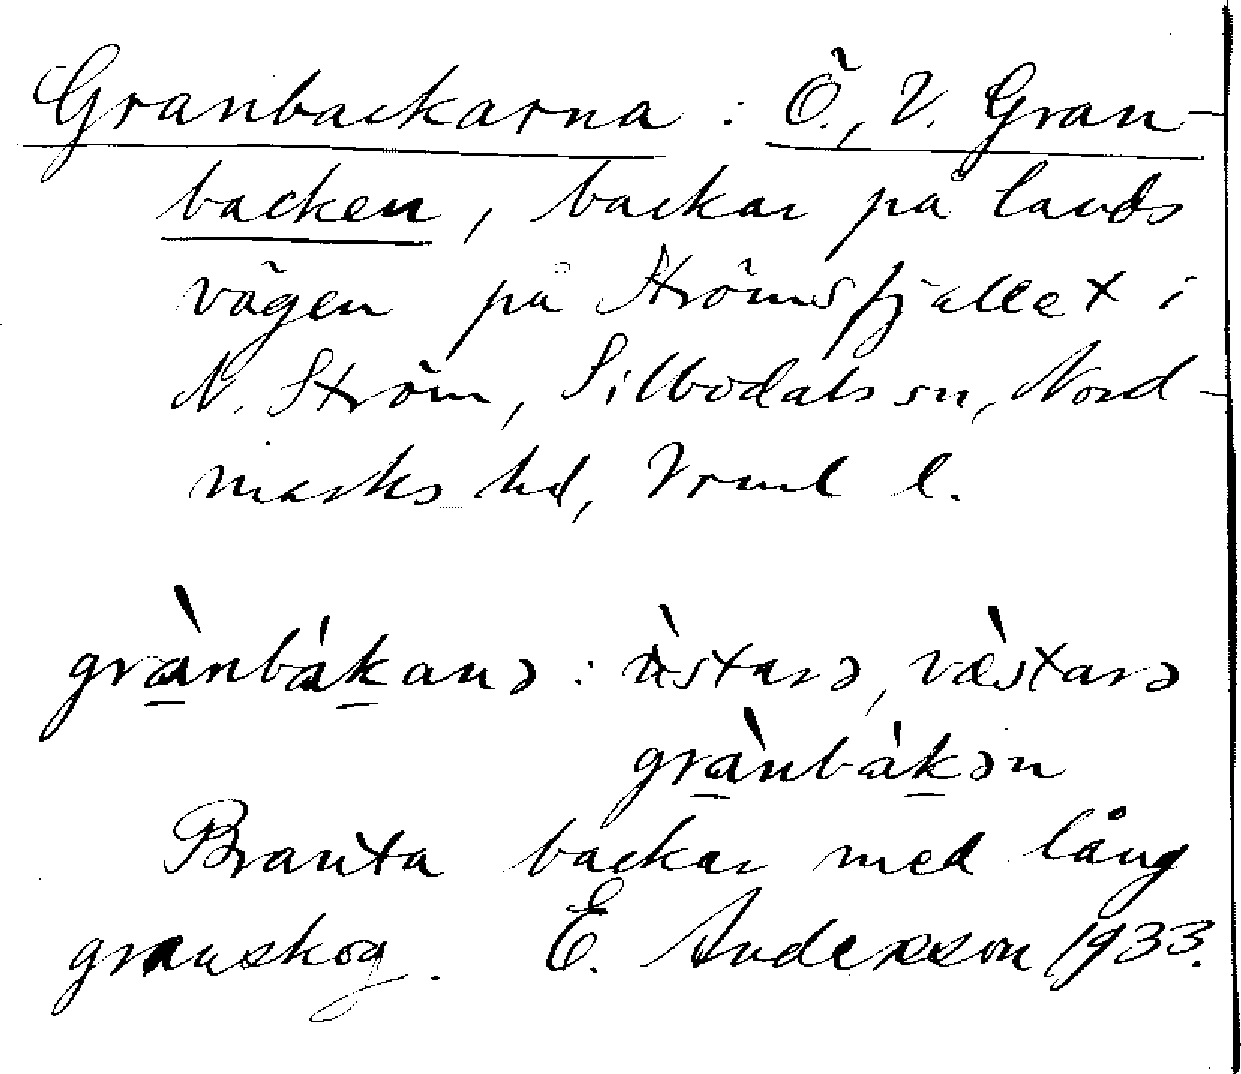 Granbackarna : Ö., V. Gran-
backen, backar på lands
vägen på Strömsfjället i
N. Ström, Silbodals sn, Nord-
marks hd, Vrml l.
grànbákanə : ùstarə, væ̀starə
grànbákən
Branta backar med lång
granskog. E. Andersson 1933.